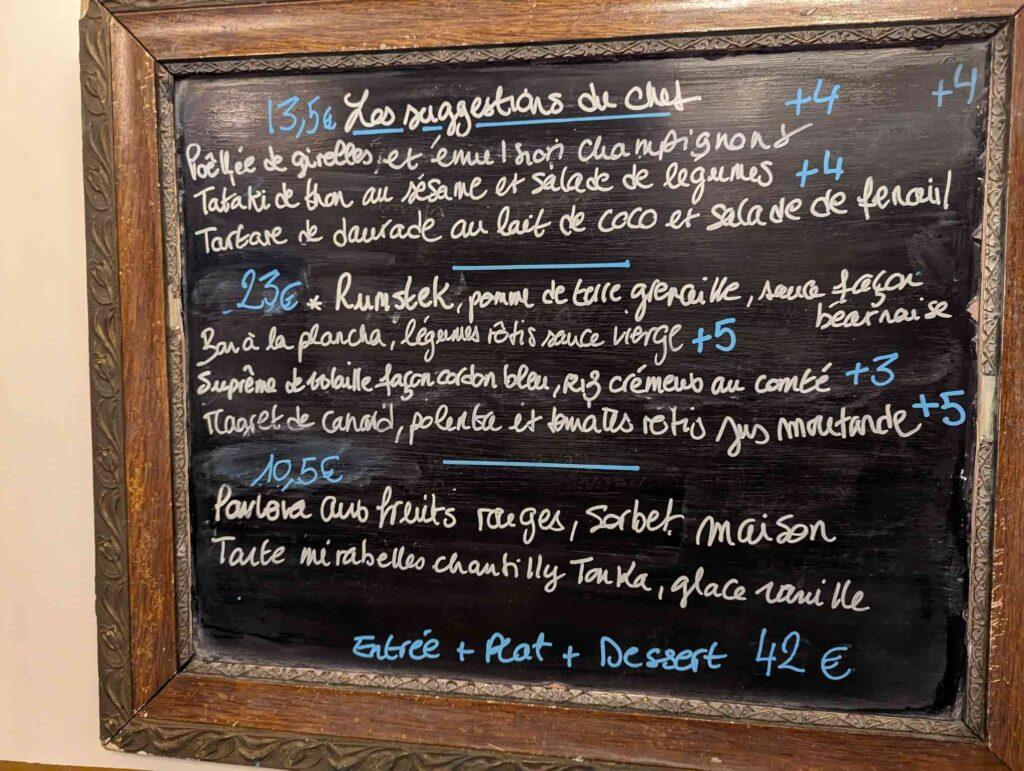 13,5€ Les suggestions du chef +4 +4
Poêlée de girolles et émulsion champignons
Tataki de thon au sésame et salade de légumes +4
Tartare de daurade au lait de coco et salade de fenouil
23€ * Rumstek, pomme de terre grenaille, sauce façon
béarnaise
Bar à la plancha, légumes rôtis sauce vierge +5
Suprême de volaille façon cordon bleu, riz crémeux au comté +3
Magret de canard, polenta et tomates rôtis jus moutarde +5
10,5€
Pavlova aux fruits rouges, sorbet maison
Tarte mirabelles chantilly Tonka, glace vanille
Entrée + Plat + Dessert 42 €